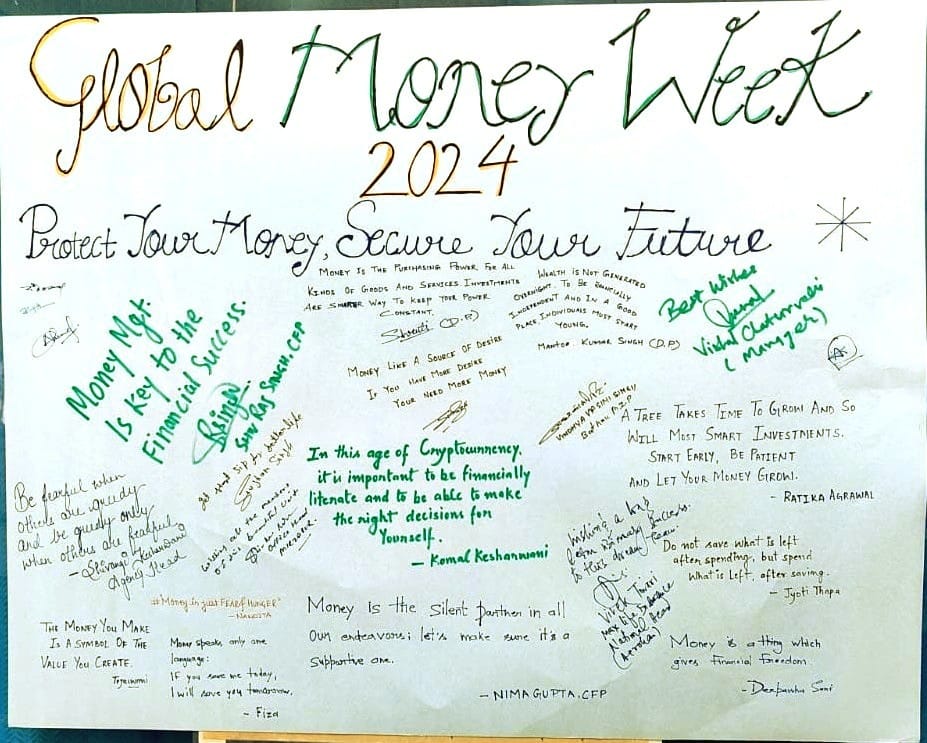 Global Money Week
2024
Protect Your Money, Secure Your Future
Money Is The Purchasing Power For All
Kinds Of Goods And Services Investments
Are Smarter Way To Keep Your Power
Constant.
Shruti (D.P)
Wealth is Not Generated
Overnight. To Be Financially
Independent And In A Good
Place, Individuals Must Start
Young.
Mantop Kumar Singh (D.P)
Best Wishes
Vishal Chaturvedi
(Manager)
Money Mgt.
Is Key to the
Financial Success.
RSingh
Shiv Raj Singh. CFP
Money Like A Source of Desire
If You Have More Desire
Your Need More Money
Vindhya Vasini Singh
A Tree Takes Time To Grow And So
Will Most Smart Investments.
Start Early, Be Patient
And Let Your Money Grow.
- Ratika Agrawal
In this age of Cryptocurrency,
it is important to be financially
literate and to be able to make
the right decisions for
Yourself.
- Komal Kesharwani
Be fearful when
others are greedy
and be greedy only
when others are fearful
- Shivangi Kesharwani
Agency Head
Gunjan Singh
Wishing a long
to this dream team.
Vivek Tiwari
Max Life Insurance
National Head
Do not save what is left
after spending, but spend
What is left, after saving.
- Jyoti Thapa
#Money is just FEAR of HUNGER"
- Namrata
The Money You Make
Is A Symbol Of The
Value You Create.
Tejaswini
Money speaks only one
language:
If you save me today,
I will save you tomorrow.
- Fiza
Money Is the Silent partner in all
Our endeavors; let's make sure it's a
supportive one.
- NIMA GUPTA, CFP
Money is a thing which
gives Financial freedom.
- Deepanshu Soni